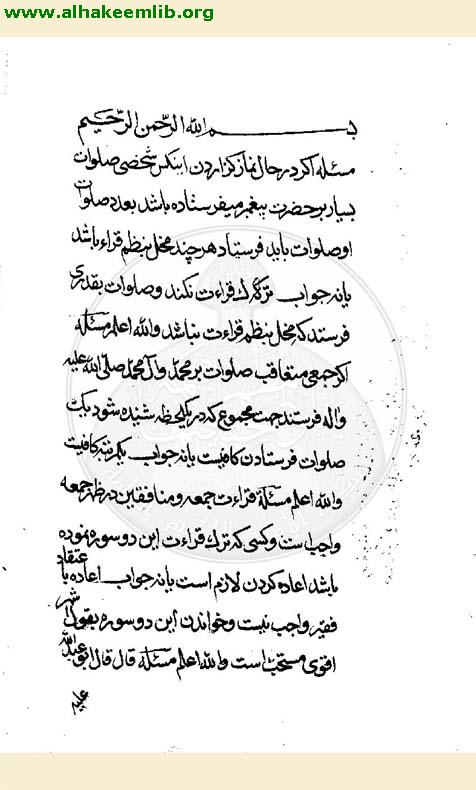 www.alhakeemlib.org
بسم الله الرحمن الرحیم
مسئله اکر در حال نماز کزاردن اینکس شخصی صلوات
بسیار بر حضرت پیغمبر میفرستاده باشد بعدد صلوات
او صلوات باید فرستاد هر چند مخل بنظم قراءة باشد
یا نه جواب ترک قراءت نکند و صلوات بقدری
فرستد که مخل بنظم قراءت نباشد والله اعلم مسئله
اکر جمعی متعاقب صلوات بر محمد وآل محمد صلی الله علیه
واله فرستند جهت مجموع که در یکلحظه شنیده شود یک
صلوات فرستادن کافیست یا نه جواب یکمرتبه کافیست
والله اعلم مسئلة قراءت جمعه و منافقین در ظهر جمعه
واجب است و کسی که ترک قراءت این دو سوره نموده
باشد اعاده کردن لازم است یا نه جواب اعاده با عتقاد
فقیر واجب نیست و خواندن این دو سوره بقول اشهر
اقوی مستحب است والله اعلم مسئلة قال قال ابو عبدالله
علیه